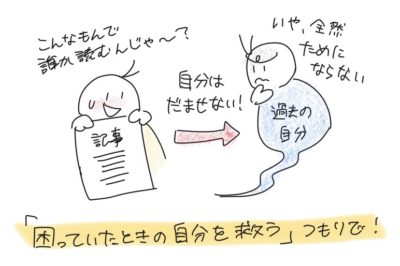 こんなもんで
誰か読むんじゃ〜?
記事
自分は
だませない!
いや、全然
ために
ならない
過去の
自分
「困っていたときの自分を救う」つもりで!